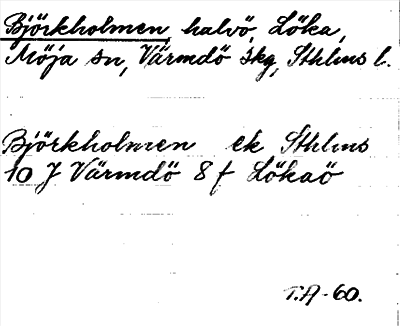 Björkholmen, halvö, Löka,
Möja sn, Värmdö skg, Sthlms l.
Björkholmen ek Sthlms
10 J Värmdö 8 f Lökaö
T.A-60.